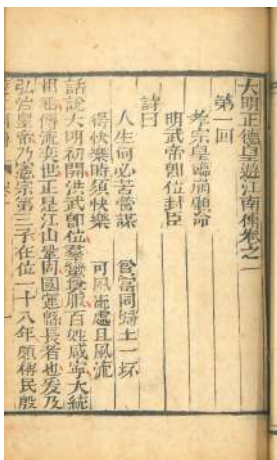 大明正德皇遊江南傳卷之一
第一回
孝宗皇臨崩顧命
明武帝即位封臣
詩曰
人生何必苦營謀 同歸土一坏
得快樂時須快樂 可風流處且風流
話說大明初開洪武即位羣黎賓服百姓咸寧大統
相 傳流奕世正是江山鞏固國運綿長者也爰及
弘治皇帝乃憲宗第三子在位一十八年頗稱民殷